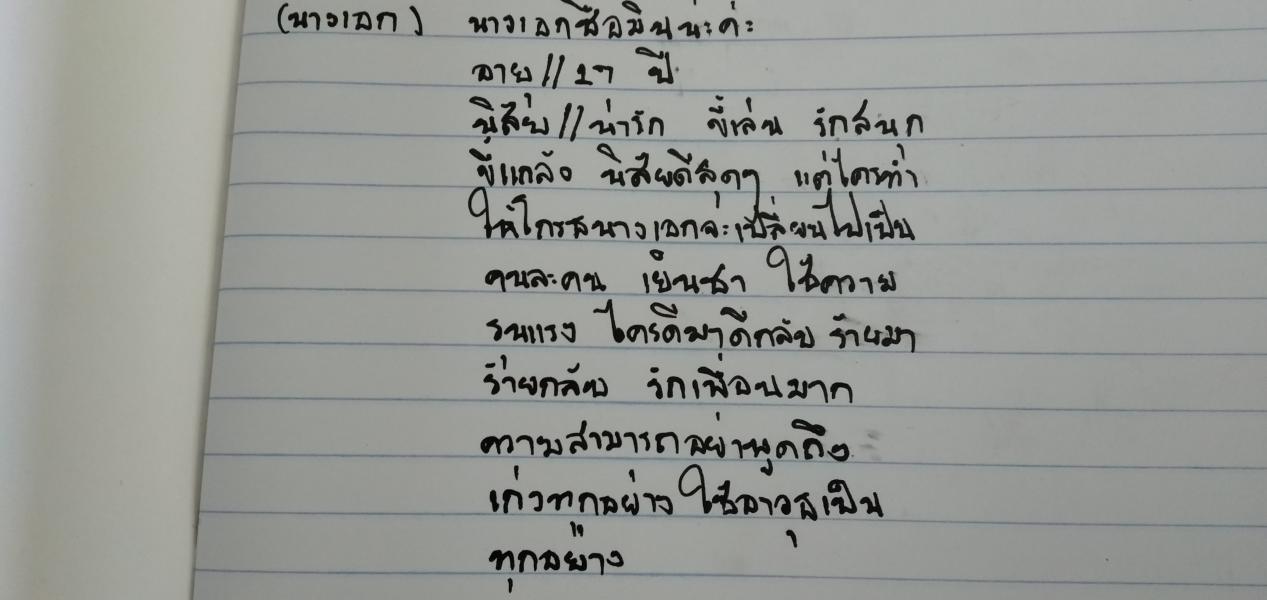 (นางเอก) นางเอกชื่อมีนนะค่ะ
อายุ//17 ปี
นิสัย//น่ารัก ขี้เล่น รักสนุก
ขี้แกล้ง นิสัยดีสุดๆ แต่ใครทำ
ให้โกรธนางเอกจะเปลี่ยนไปเป็น
คนละคน เย็นชา ใช้ความ
รุนแรง ใครดีมาดีกลับ ร้ายมา
ร้ายกลับ รักเพื่อนมาก
ความสามารถอย่าพูดถึง
เก่งทุกอย่าง ใช้อาวุธเป็น
ทุกอย่าง